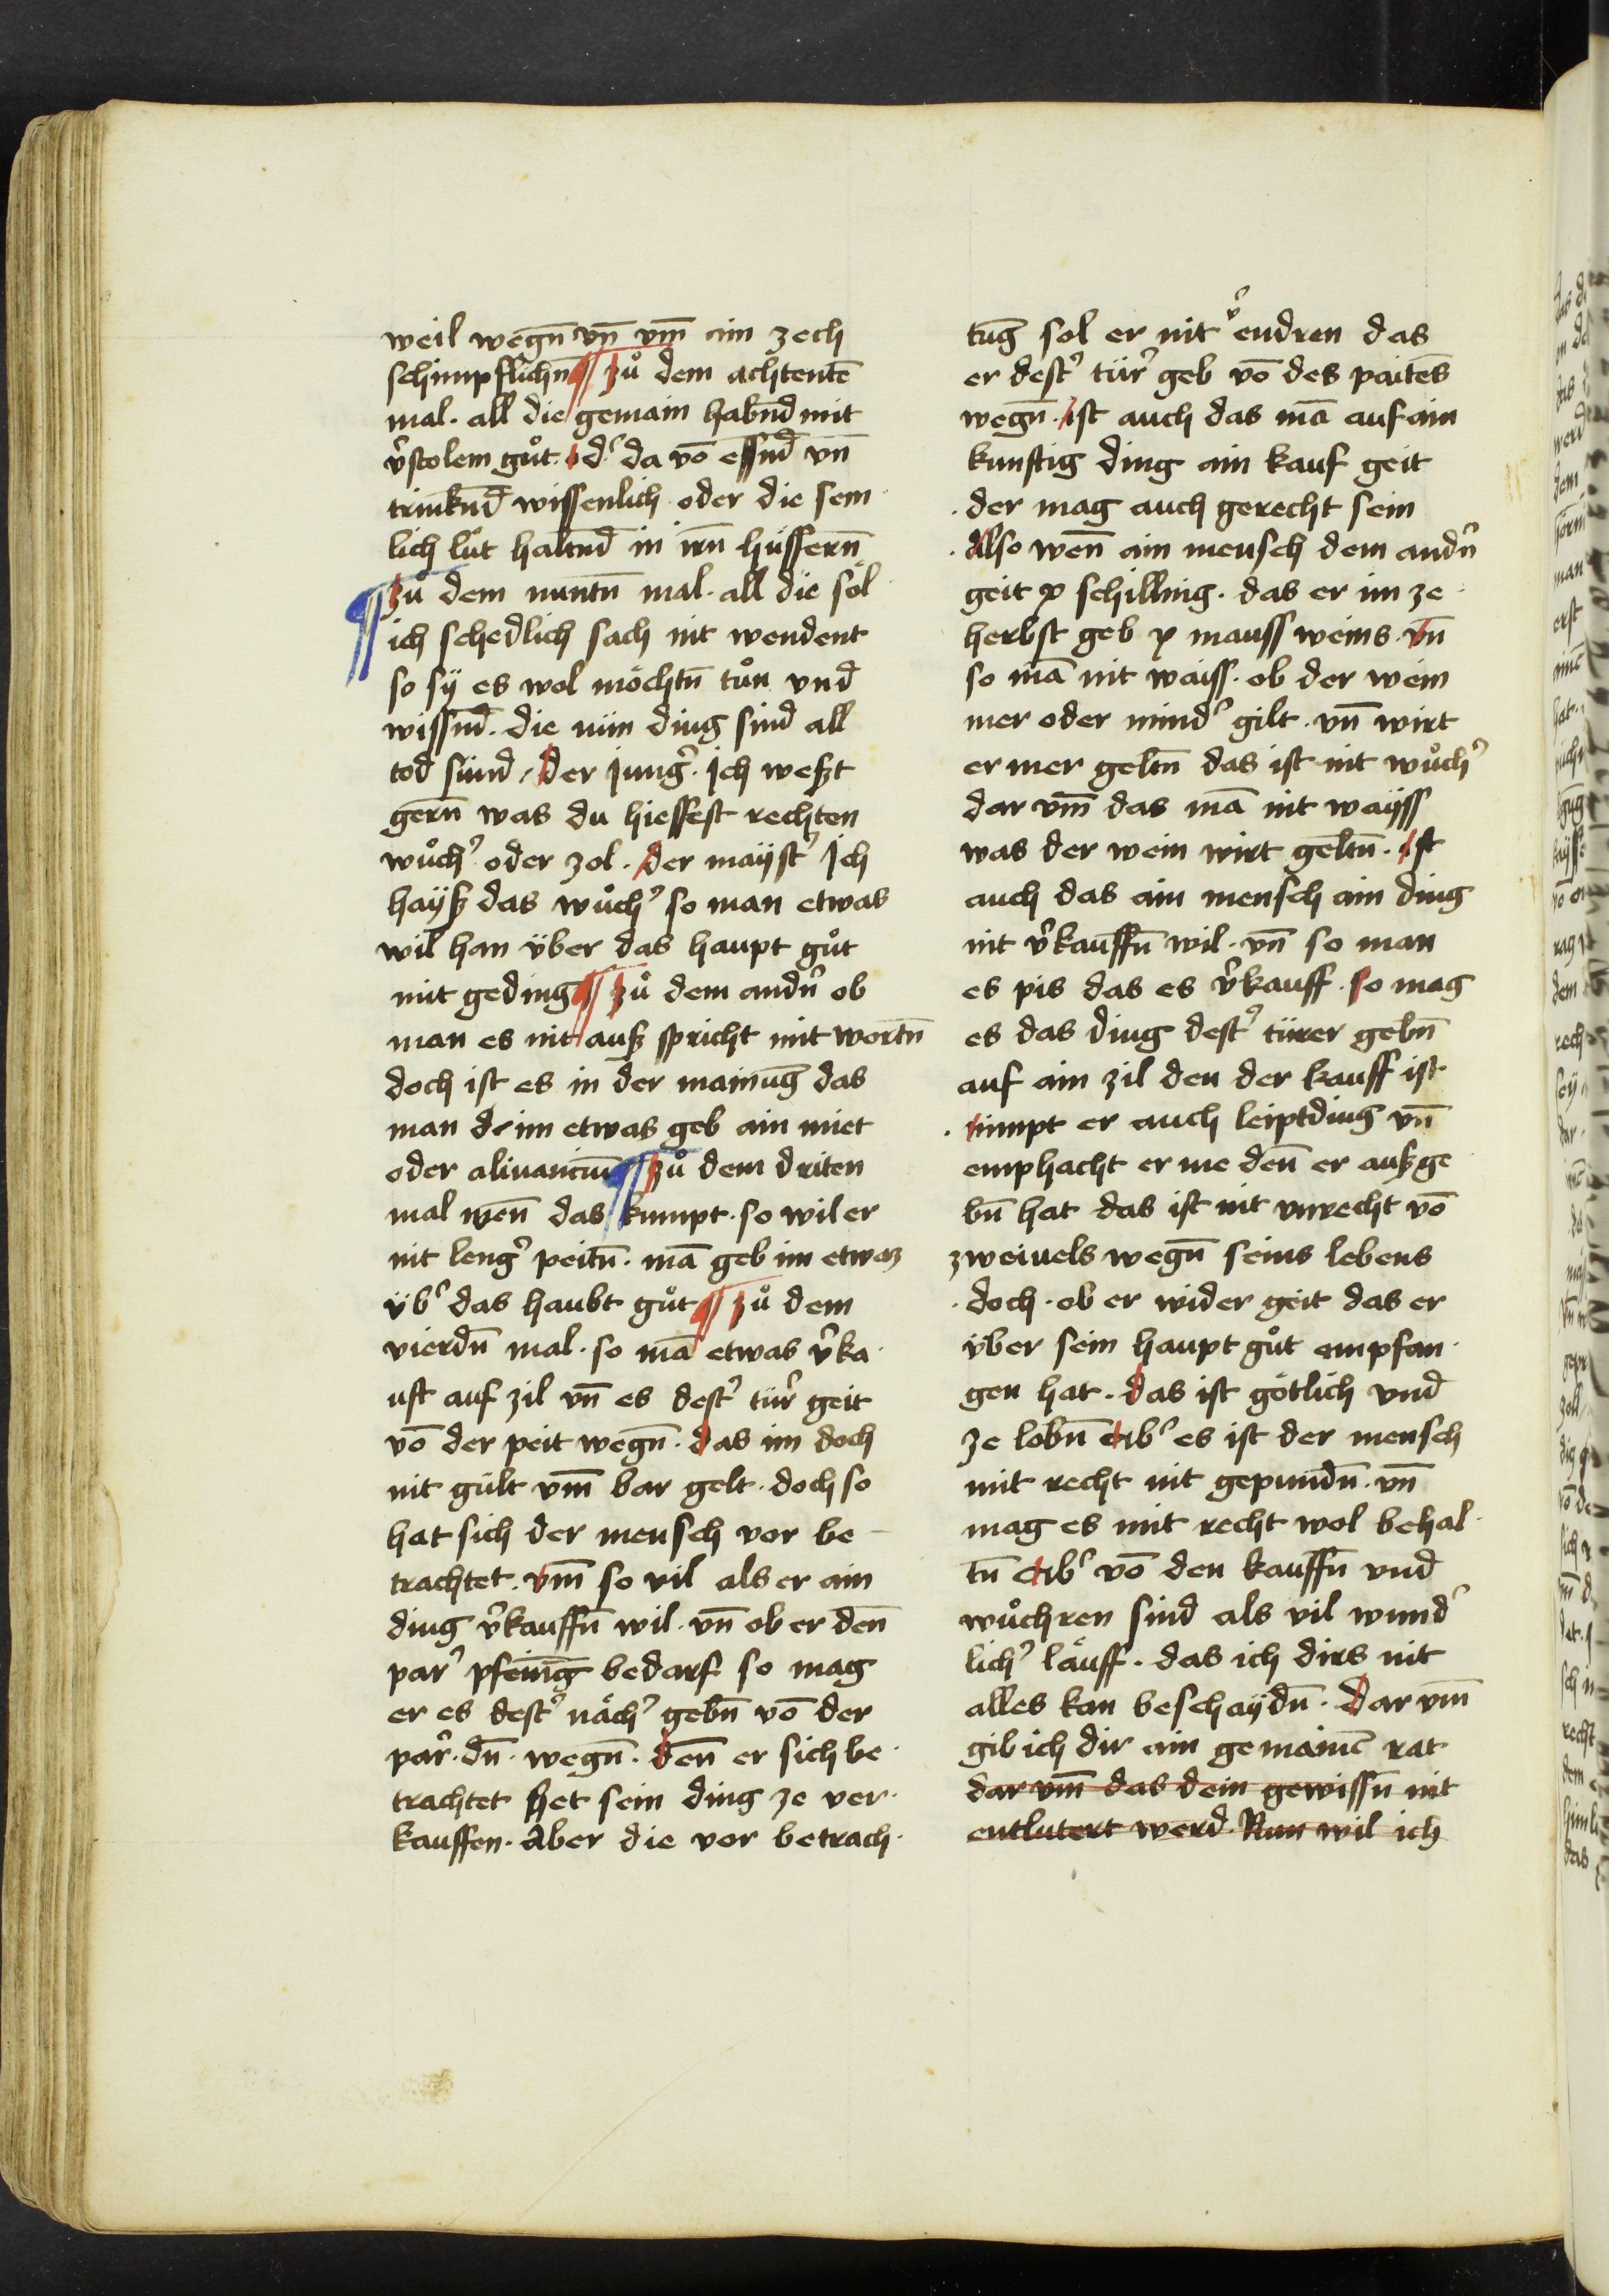 weil wegn̄ vn̄ vm̄ ain zech
schimpflichn̄ ¶ zů dem achtentē
mal · all die gemain habn̄d mit
v̉stolem gůt · od̉ da vō essn̄d vn̄
trinkn̄d wissenlich oder die sem
lich lüt haltn̄d in irn̄ hüssern̄
¶ zů dem nuntn̄ mal · all die söl
ich schedlich sach nit wendent
so sÿ es wol möchtn̄ tůn vnd
wissn̄d · die nün ding sind all
tod sünd / der jung̉ · Ich weßt
gern̄ was du hiessest rechten
wůch̉ oder zol · der maÿst̉ Ich
haÿß das wůch̉ so man etwas
wil han über das haupt gůt
mit geding ¶ zů dem andn̉ ob
man es nit auß spricht mit wortn̄
doch ist es in der mainūg das
man im etwas geb ain miet
oder ¶ zů dem driten
mal wen̄ das kumpt · so wil er
nit leng̉ peitn̄ · mā geb im etwaz
üb̉ das haubt gůt ¶ zů dem
vierdn̄ mal · so mā etwas v̉ka
uft auf zil vn̄ es dest̉ tür̉ geit
vō der peit wegn̄ · das im doch
nit gült vm̄ bar gelt · doch so
hat sich der mensch vor be
trachtet · vm̄ so vil als er ain
ding v̉kauffn̄ wil · vn̄ ob er den̄
par̉ pfeni̅g bedarf so mag
er es dest̉ näch̉ gebn̄ vō der
par̉ · dn̄ · wegn̄ · den̄ er sich be
trachtet het sein ding ze ver
kauffen · Aber die vor betrach
tūg sol er nit v̉endren das
er dest̉ tür̉ geb vō des paites̄
wegn̄ · ist auch das mā auf ain
kunftig ding ain kauf geit
· der mag auch gerecht sein
· Also wen̄ ain mensch dem andn̉
geit x schilling · das er im ze
herbst geb x mauss weins · vn̄
so mā nit waiss · ob der wein
mer oder mind̉ gilt · vn̄ wirt
er mer geltn̄ das ist nit wůch̉
dar vm̄ das mā nit waÿss
was der wein wirt geltn̄ · Ist
auch das ain mensch ain ding
nit v̉kauffn̄ wil · vn̄ so man
es pis das es v̉kauff · so mag
es das ding dest̉ türer gebn̄
auf ain zil den der kauff ist
· nimpt er auch leiptding vn̄
emphacht er me den̄ er auß ge
bn̄ hat das ist nit vnrecht vō
zweiuels wegn̄ seins lebens
· doch · ob er wider geit das er
über sein haupt gůt empfan
gen hat · das ist götlich vnd
ze lobn̄ Ab̉ es ist der mensch
mit recht nit gepundn̄ · vn̄
mag es mit recht wol behal
tn̄ Ab̉ vō den kauffn̄ vnd
wůchren sind als vil wund̉
lich̉ läuff · das ich dirs nit
alles kan beschaÿdn̄ · Dar vm̄
gib ich dir ain gemainē rat
dar vm̄ das dein gewissn̄ nit
entlutert werd · Nun wil ich